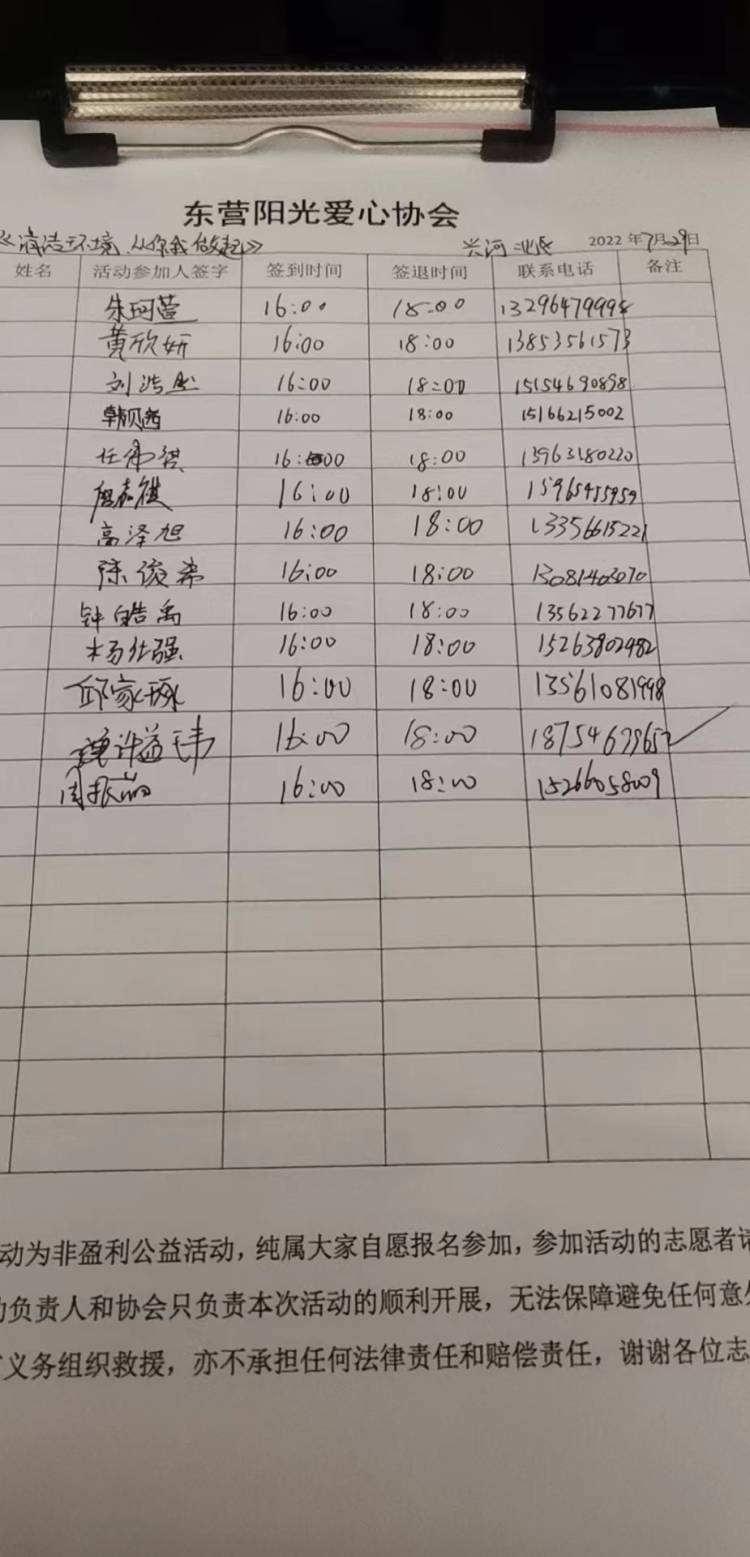 东营阳光爱心协会
《清洁环境,从你我做起》 兴河北区 2022年7月29日
姓名 活动参加人签字 签到时间 签退时间 联系电话 备注
朱珂萱 16:00 18:00 13296479998
黄欣妍 16:00 18:00 13853561573
刘浩然 16:00 18:00 15154690898
韩贝茜 16:00 18:00 15166215002
任 16:00 18:00 13963180220
16:00 18:00 15965455959
高泽旭 16:00 18:00 13356615221
陈俊希 16:00 18:00 13081403070
钟皓禹 16:00 18:00 13562277677
杨仕强 16:00 18:00 15263802982
邱家琢 16:00 18:00 13561081998
许益玮 16:00 18:00
周振 16:00 18:00 15266058009
动为非盈利公益活动，纯属大家自愿报名参加，参加活动的志愿者请
负责人和协会只负责本次活动的顺利开展，无法保障避免任何意外
义务组织救援，亦不承担任何法律责任和赔偿责任，谢谢各位志